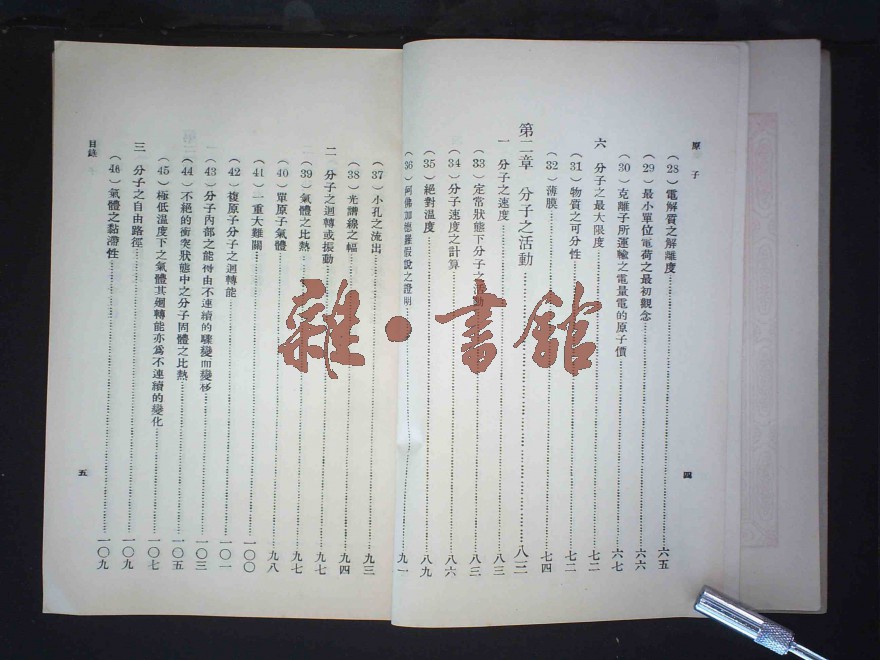 原子
(28)電解質之解離度……六五
(29)最小單位電荷之最初觀念……六六
(30)克離子所運輸之電量電的原子價……六七
六 分子之最大限度……七二
(31)物質之可分性……七二
(32)薄膜……七四
第二章 分子之活動……八三
一 分子之速度……八三
(33)定常狀態下分子之活動……八三
(34)分子速度之計算……八六
(35)絕對溫度……八九
(36)阿佛加德羅假說之證明……九一
四
(37)小孔之流出……九三
(38)光譜線之幅……九四
二 分子之迴轉或振動……九七
(39)氣體之比熱……九七
(40)單原子氣體……九八
(41)一重大難關……一〇〇
(42)複原子分子之迴轉能……一〇一
(43)分子內部之能得由不連續的驟變而變移……一〇三
(44)不絕的衝突狀態中之分子固體之比熱……一〇五
(45)極低溫度下之氣體其迴轉能亦爲不連續的變化……一〇七
三 分子之自由路徑……一〇九
(46)氣體之黏滯性……一〇九
目錄
五
雜·書館